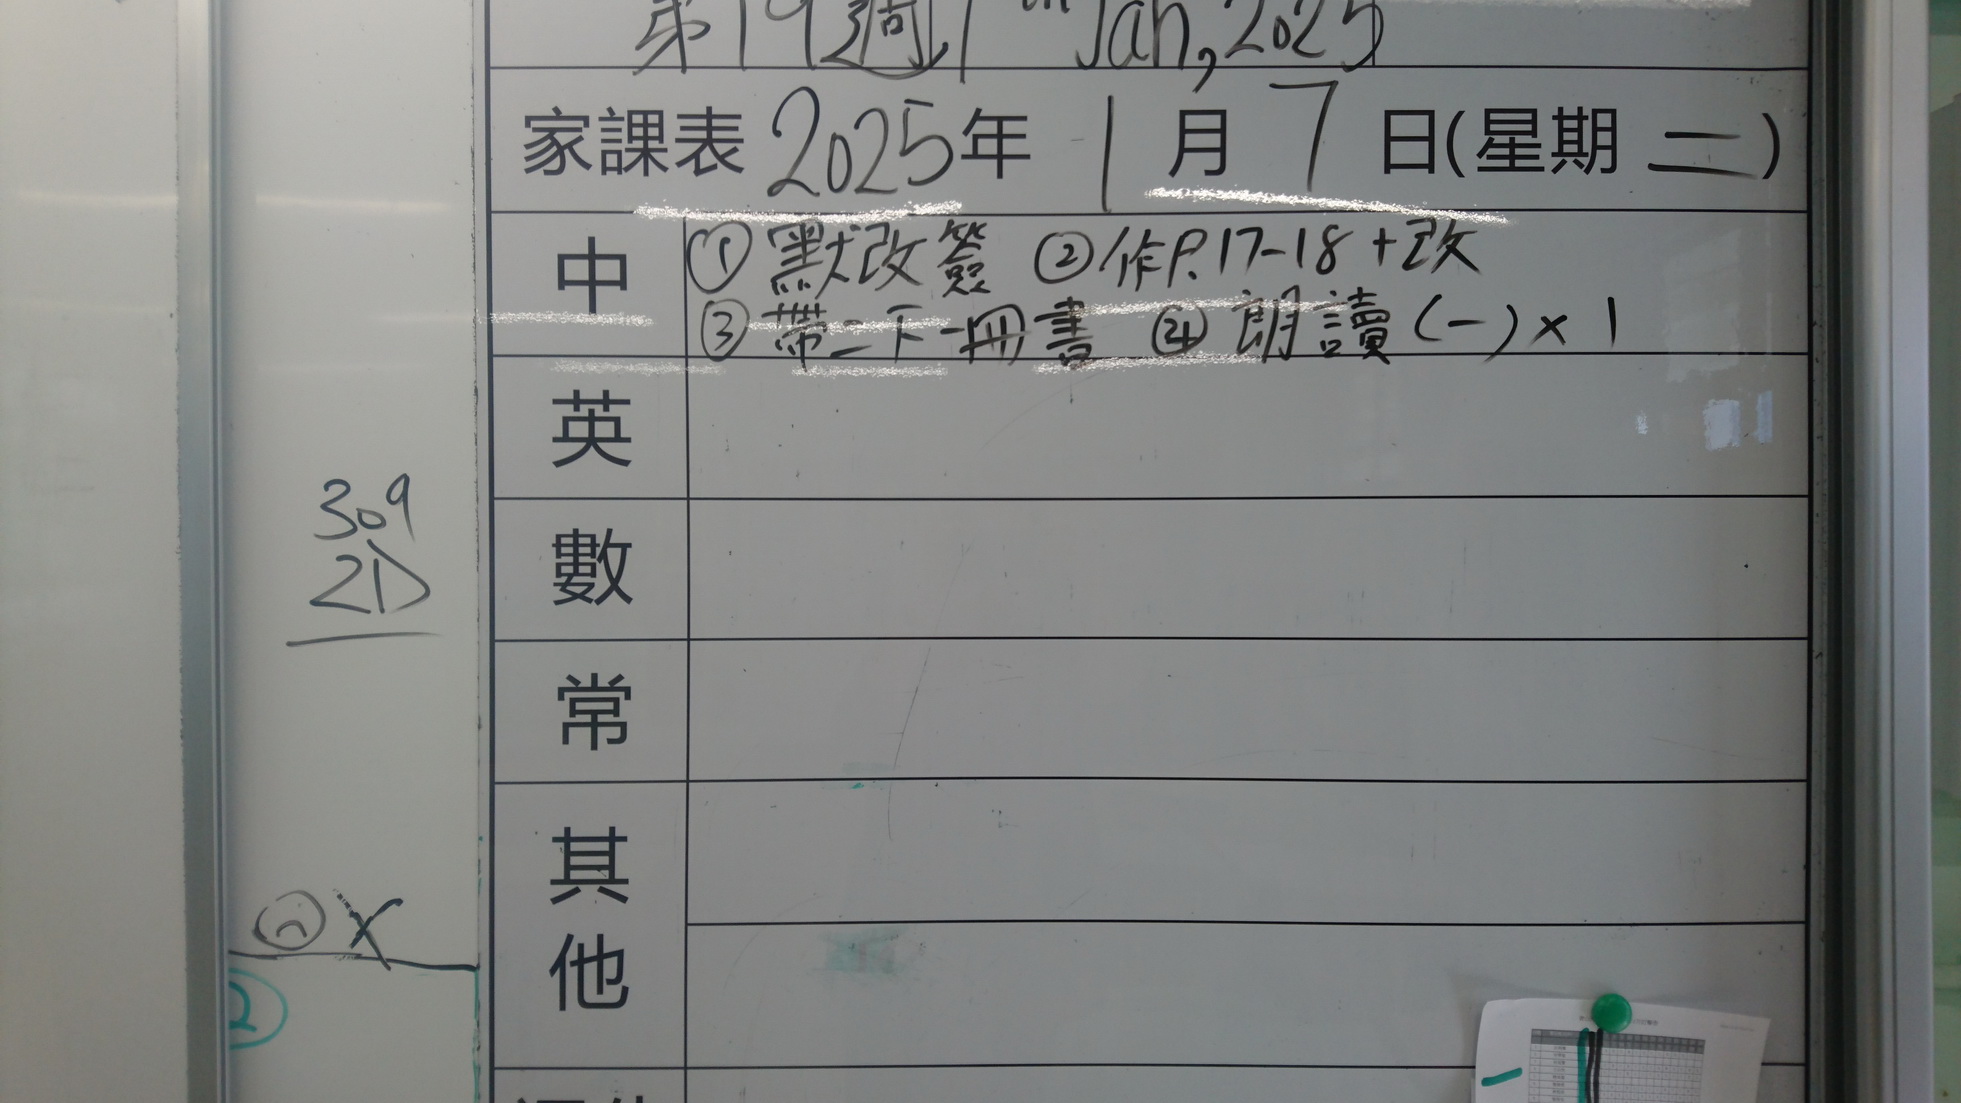 第19週 7th Jan, 2025
家課表 2025年 1月 7日(星期 二)
中
① 默改簽 ② 作P.17-18 + 改
③ 帶二下一冊書 ④ 朗讀(一) x 1
英
數
常
其他
309
2D
2